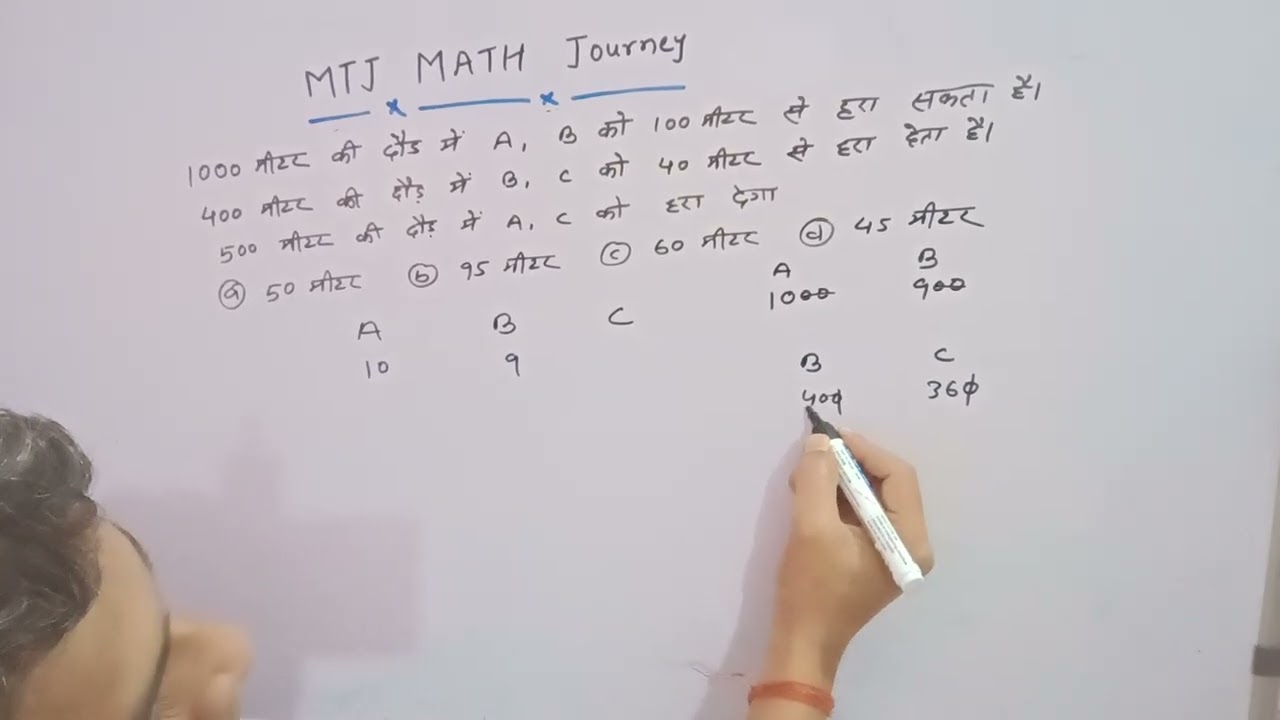 MTJ MATH Journey
1000 मीटर की दौड में A, B को 100 मीटर से हरा सकता है।
400 मीटर की दौड़ में B, C को 40 मीटर से हरा देता है।
500 मीटर की दौड़ में A, C को हरा देगा
ⓐ 50 मीटर ⓑ 95 मीटर ⓒ 60 मीटर ⓓ 45 मीटर
A B
1000 900
A B C
10 9
B C
400 360